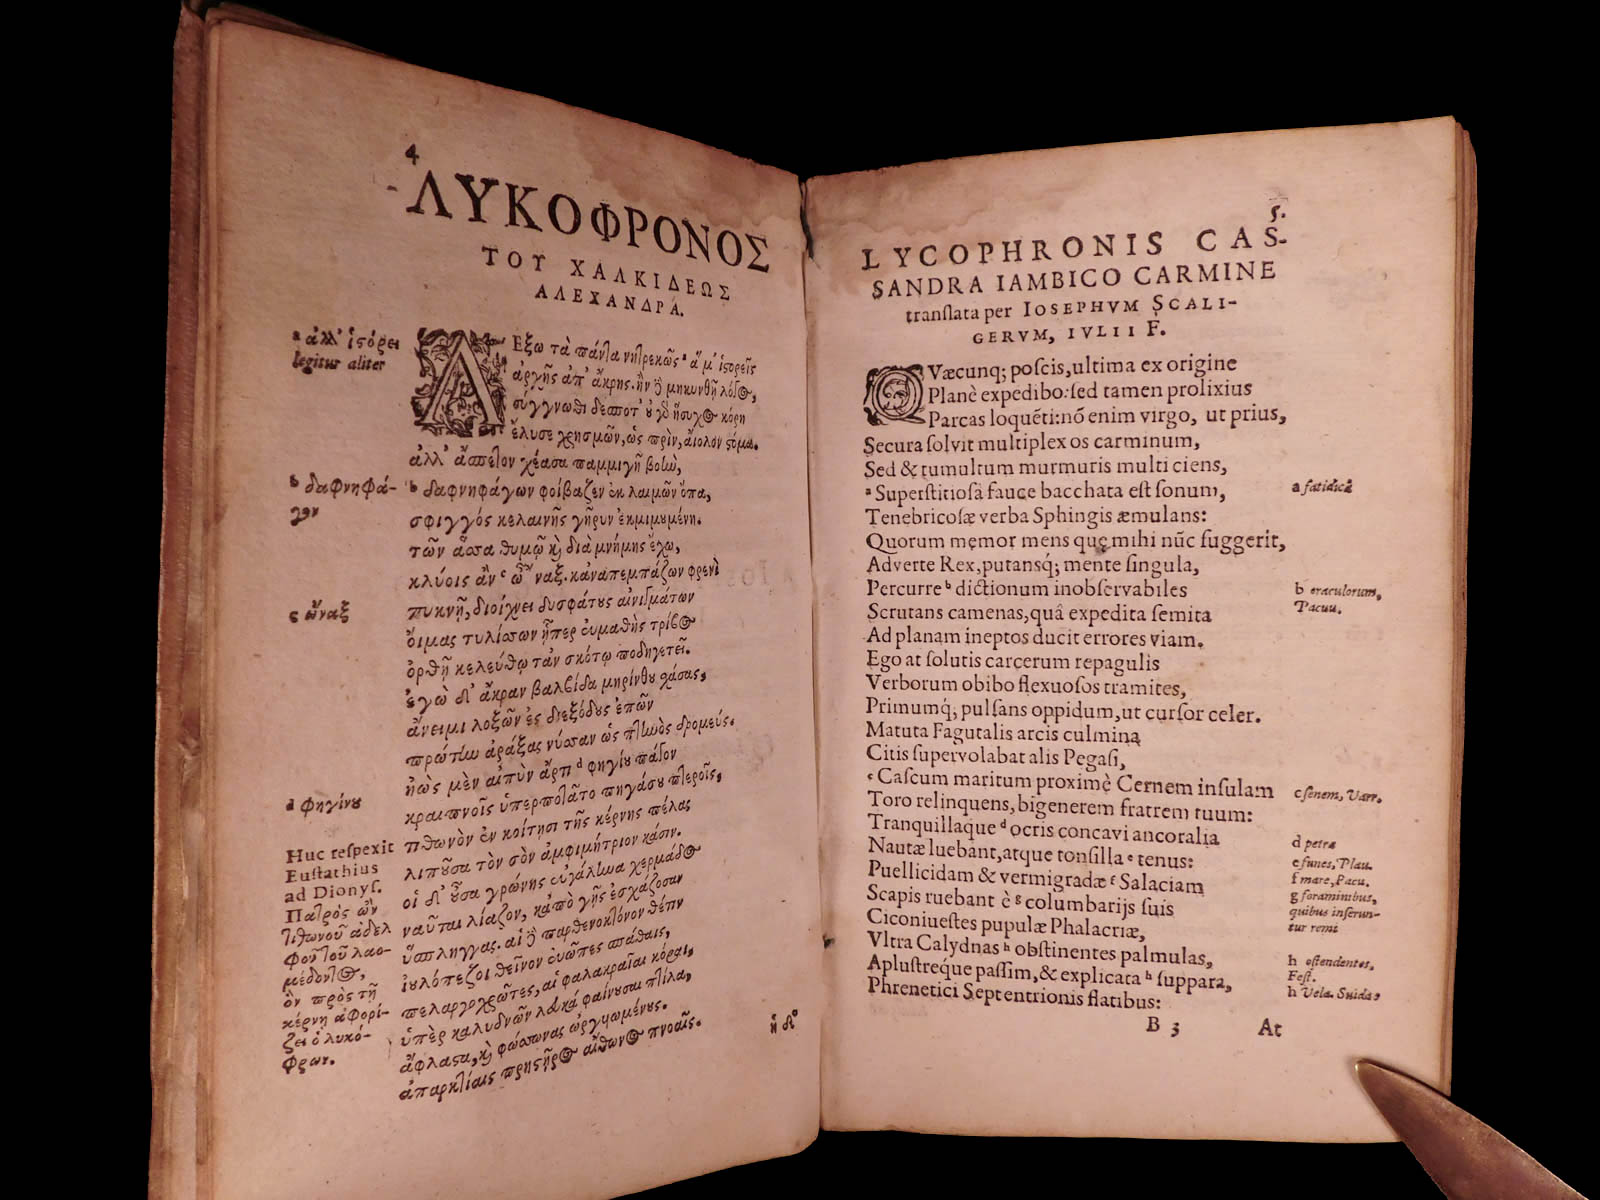 4
ΛΥΚΟΦΡΟΝΟΣ
ΤΟΥ ΧΑΛΚΙΔΕΩΣ
ΑΛΕΧΑΝΔΡΑ.
a ἀλλ' ἱϛόρει
legitur aliter
ΛΕξω τὰ πάντα νητρεκῶς a ἅ μ' ἱϛορεῖς
ἀρχῆς ἀπ' ἄκρης. ἢν ϳ μηκυνθῇ λόγος,
σύγγνωθι δεσποτ' ὐ γὸ ἥσυχος κόρη
ἔλυσε χρησμῶν, ὡς πρὶν, αἰολον ϛόμα.
ἀλλ' ἄσπετον χέασα παμμιγῆ βοὼ,
b δαφνηφά-
γον
b δαφνηφάγων φοίβαζεν ἐκ λαιμῶν ὄπα,
σφιγγὸς κελαινῆς γῆρυν ἐκμιμουμένη.
τῶν ἅσσα θυμῷ ϗ διὰ μνήμης ἔχω,
κλύοις ἂν c ὦ 'ναξ. κἀναπεμπάζων φρενὶ
c ὦναξ
πυκνῇ, διοίχνει δυσφάτους αἰνιγμάτων
οἴμας τυλίσσων ᾗπερ εὐμαθὴς τρίβος
ὀρθῇ κελεύθῳ τἀν σκότῳ ποδηγετεῖ.
ἐγὼ δ' ἄκραν βαλβίδα μηρίνθου χάσας,
ἄνειμι λοξῶν ἐς διεξόδους ἐπῶν
πρώτην ἀράξας νύσσαν ὡς πτηνὸς δρομεύς.
ἠὼς μὲν αἰπὺν ἄρτι d φηγίου πάγον
d φηγίνου
κραιπνοῖς ὑπερποτᾶτο πηγάσου πτεροῖς,
τιθωνὸν ἐν κοίτησι τῆς κέρνης πέλας
λιποῦσα τὸν σὸν ἀμφιμήτριον κάσιν.
οἱ δ' οὖσα γρώνης εὐγάληνα χερμάδος
ναῦται λίαζον, κἀπὸ γῆς ἐσχάζοσαν
ὕσπληγγας. αἱ ϳ παρθενοκτόνον θέτιν
ἰουλόπεζοι θεῖνον εὐῶπες σπάθαις,
πελαργοχρῶτες, αἱ φαλακραῖαι κόραι,
ὑπὲρ καλυδνῶν λευκὰ φαίνουσαι πτίλα,
ἄφλαϛα, ϗ φώσσωνας ὠργυωμένους.
ἀπαρκτίαις πρηϛῆρος αἴθωνος πνοαῖς.
Huc respexit
Eustathius
ad Dionys.
Πατρὸς ὢν
τιθωνοῦ ἀδελ
φοῦ τοῦ λαο-
μέδοντος,
ὃν πρὸς τῇ
κέρνῃ ἀφορί-
ζει ὁ λυκό-
φρων.
ἢ δι'
5.
LYCOPHRONIS CAS-
SANDRA IAMBICO CARMINE
translata per IOSEPHVM SCALI-
GERVM, IVLII F.
QVæcunq; poscis, ultima ex origine
Planè expedibo: sed tamen prolixius
Parcas loquẽti: nõ enim virgo, ut prius,
Secura solvit multiplex os carminum,
Sed & tumultum murmuris multi ciens,
a Superstitiosâ fauce bacchata est sonum,
a fatidicâ
Tenebricosæ verba Sphingis æmulans:
Quorum memor mens quę mihi nũc suggerit,
Adverte Rex, putansq; mente singula,
Percurre b dictionum inobservabiles
b oraculorum,
Pacuu.
Scrutans camenas, quâ expedita semita
Ad planam ineptos ducit errores viam.
Ego at solutis carcerum repagulis
Verborum obibo flexuosos tramites,
Primumq; pulsans oppidum, ut cursor celer.
Matuta Fagutalis arcis culmina
Citis supervolabat alis Pegasi,
c Cascum maritum proximè Cernem insulam
c senem, Varr.
Toro relinquens, bigenerem fratrem tuum:
Tranquillaque d ocris concavi ancoralia
d petræ
Nautæ luebant, atque tonsilla e tenus:
e funes, Plau.
Puellicidam & vermigradæ f Salaciam
f mare, Pacu.
Scapis ruebant è g columbarijs suis
g foraminibus,
quibus inserun-
tur remi
Ciconivestes pupulæ Phalacriæ,
Vltra Calydnas h obstinentes palmulas,
h ostendentes,
Fest.
Aplustreque passim, & explicata h suppara,
h Vela. Suidas
Phrenetici Septentrionis flatibus:
B 3
At